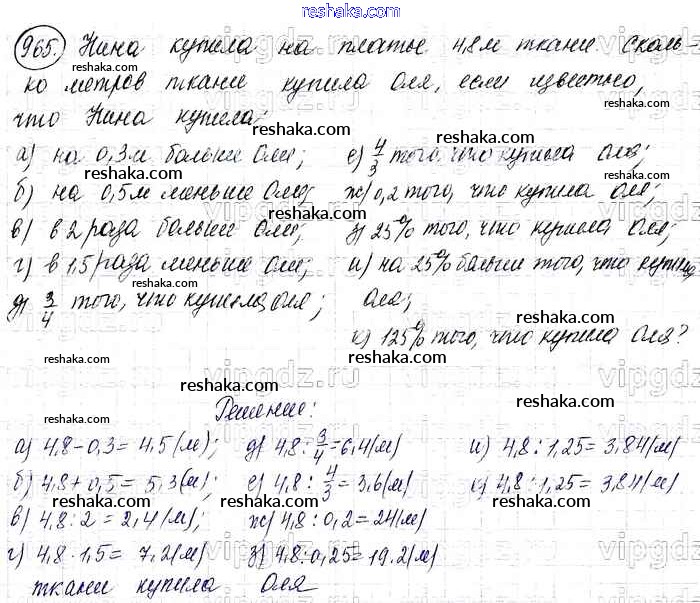 reshaka.com
965. Нина купила на платье 4,8 м ткани. Сколь-
ко метров ткани купила Оля, если известно,
что Нина купила:
а) на 0,3 м больше Оли;
б) на 0,5 м меньше Оли;
в) в 2 раза больше Оли;
г) в 1,5 раза меньше Оли;
д) 3/4 того, что купила Оля;
е) 4/3 того, что купила Оля;
ж) 0,2 того, что купила Оля;
з) 25% того, что купила Оля;
и) на 25% больше того, что купила
Оля;
к) 125% того, что купила Оля?
Решение:
а) 4,8-0,3= 4,5(м);
б) 4,8+0,5= 5,3(м);
в) 4,8:2=2,4(м);
г) 4,8·1,5= 7,2(м)
д) 4,8:3/4=6,4(м)
е) 4,8:4/3=3,6(м)
ж) 4,8:0,2=24(м)
з) 4,8:0,25=19.2(м)
и) 4,8:1,25= 3,84(м)
к) 4,8:1,25= 3,84(м)
ткани купила Оля
reshaka.com
vipgdz.ru